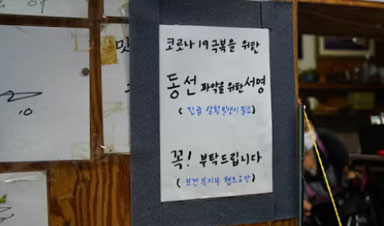 코로나 19 극복을 위한
동선 파악을 위한 서명
( 긴급 상황 발생시 필요)
꼭! 부탁드립니다
( 보건 복지부 협조요망)
맛
10